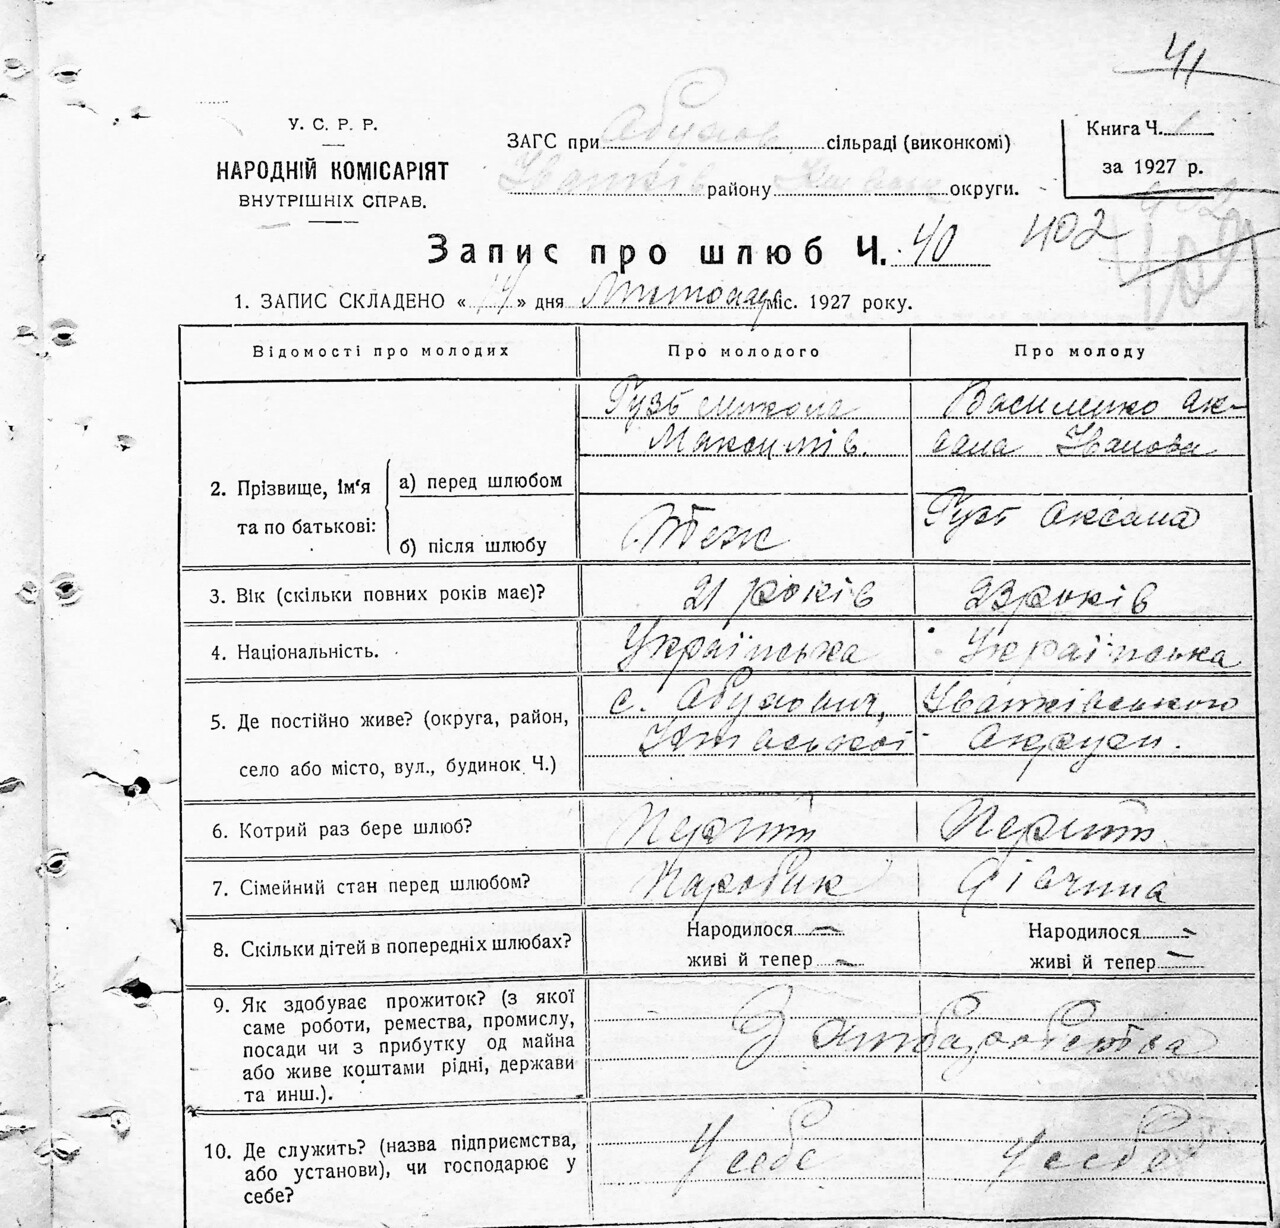 41
У. С. Р. Р.
НАРОДНІЙ КОМІСАРІЯТ
ВНУТРІШНІХ СПРАВ.
ЗАГС при сільраді (виконкомі)
Іванків району округи.
Книга Ч. 1
за 1927 р.
Запис про шлюб Ч. 40
402
1. ЗАПИС СКЛАДЕНО « 14 » дня Листопад міс. 1927 року.
Відомості про молодих
Про молодого
Про молоду
Гузь Микола
Максимів.
Василенко Ок-
сана Іванова
2. Прізвище, ім'я
та по батькові:
а) перед шлюбом
б) після шлюбу
Теж
Гузь Оксана
3. Вік (скільки повних років має)?
21 років
23 років
4. Національність.
Українська
Українська
5. Де постійно живе? (округа, район,
село або місто, вул., будинок Ч.)
с. Обухович,
Іванківського
Округи.
6. Котрий раз бере шлюб?
Перший
Перший
7. Сімейний стан перед шлюбом?
Паробик
Дівчина
8. Скільки дітей в попередніх шлюбах?
Народилося —
живі й тепер —
Народилося —
живі й тепер —
9. Як здобуває прожиток? (з якої
саме роботи, ремества, промислу,
посади чи з прибутку од майна
або живе коштами рідні, держави
та инш.).
З хліборобства
10. Де служить? (назва підприємства,
або установи), чи господарює у
себе?
У себе
У себе